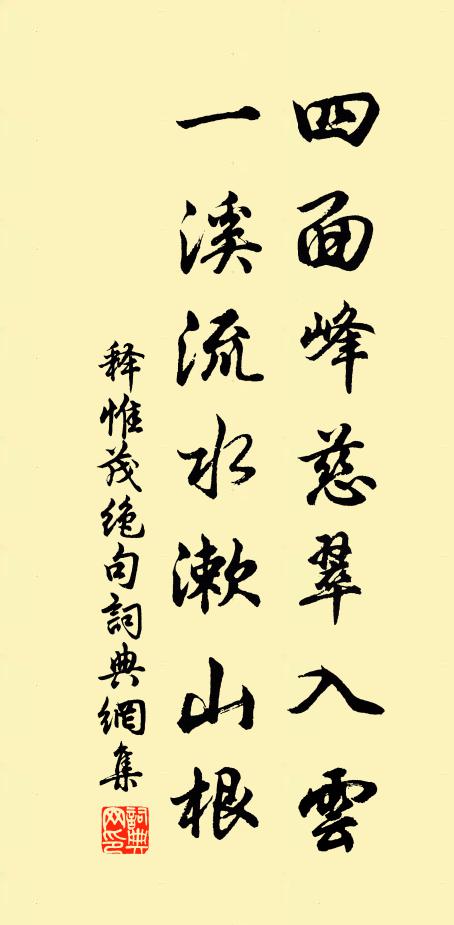 四面峰慈翠入雲
一溪流水漱山根
释惟茂绝句詞典網集
詞典网印